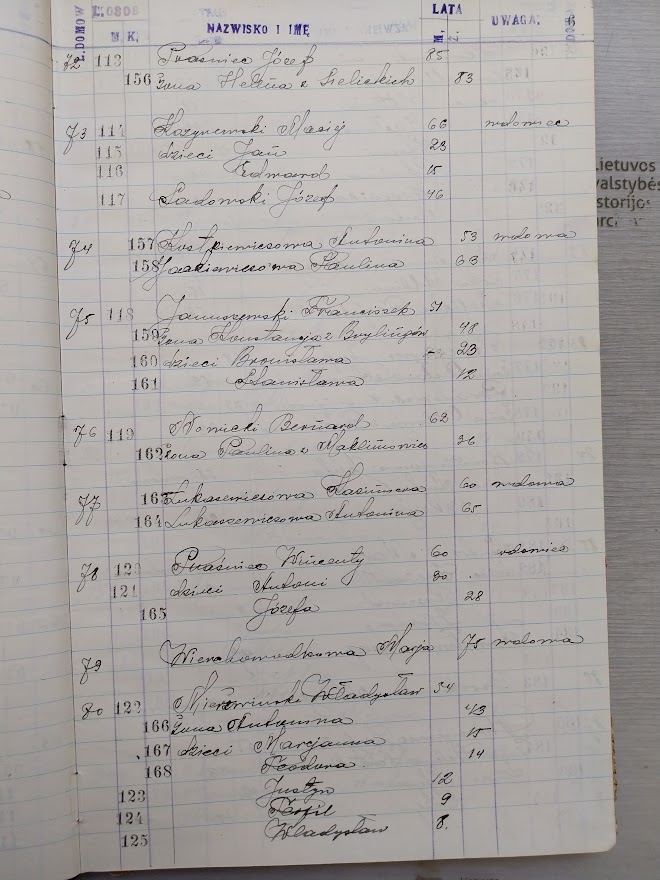 L. DOMÓW L. OSOB NAZWISKO I IMĘ LATA UWAGA:
M. K. M. Ż.
72 113 Praśniec Józef 85
156 żona Helena z Sielickich 83
73 114 Maciej 66 wdowiec
115 dzieci Jan 23
116 Edmard 15
117 Sadowski Józef 46
74 157 Antonina 53 wdowa
158 Paulina 63
75 118 Januszewski Franciszek 51
159 żona Konstancja z 48
160 dzieci Bronisława 23
161 Stanisława 12
76 119 Nowicki Bernard 62
162 żona Paulina z 26
77 163 Łukasewiczowa Kazimiera 60 wdowa
164 Łukaszewiczowa Antonina 65
78 120 Praśniec Wincenty 60 wdowiec
121 dzieci Antoni 30
165 Józefa 28
79 Marja 75 wdowa
80 122 Władysław 54
166 żona Antonina 43
167 dzieci Marcjanna 15
168 Teodora 14
123 Justyn 12
124 9
125 Władysław 8.
Lietuvos
valstybės
istorijos